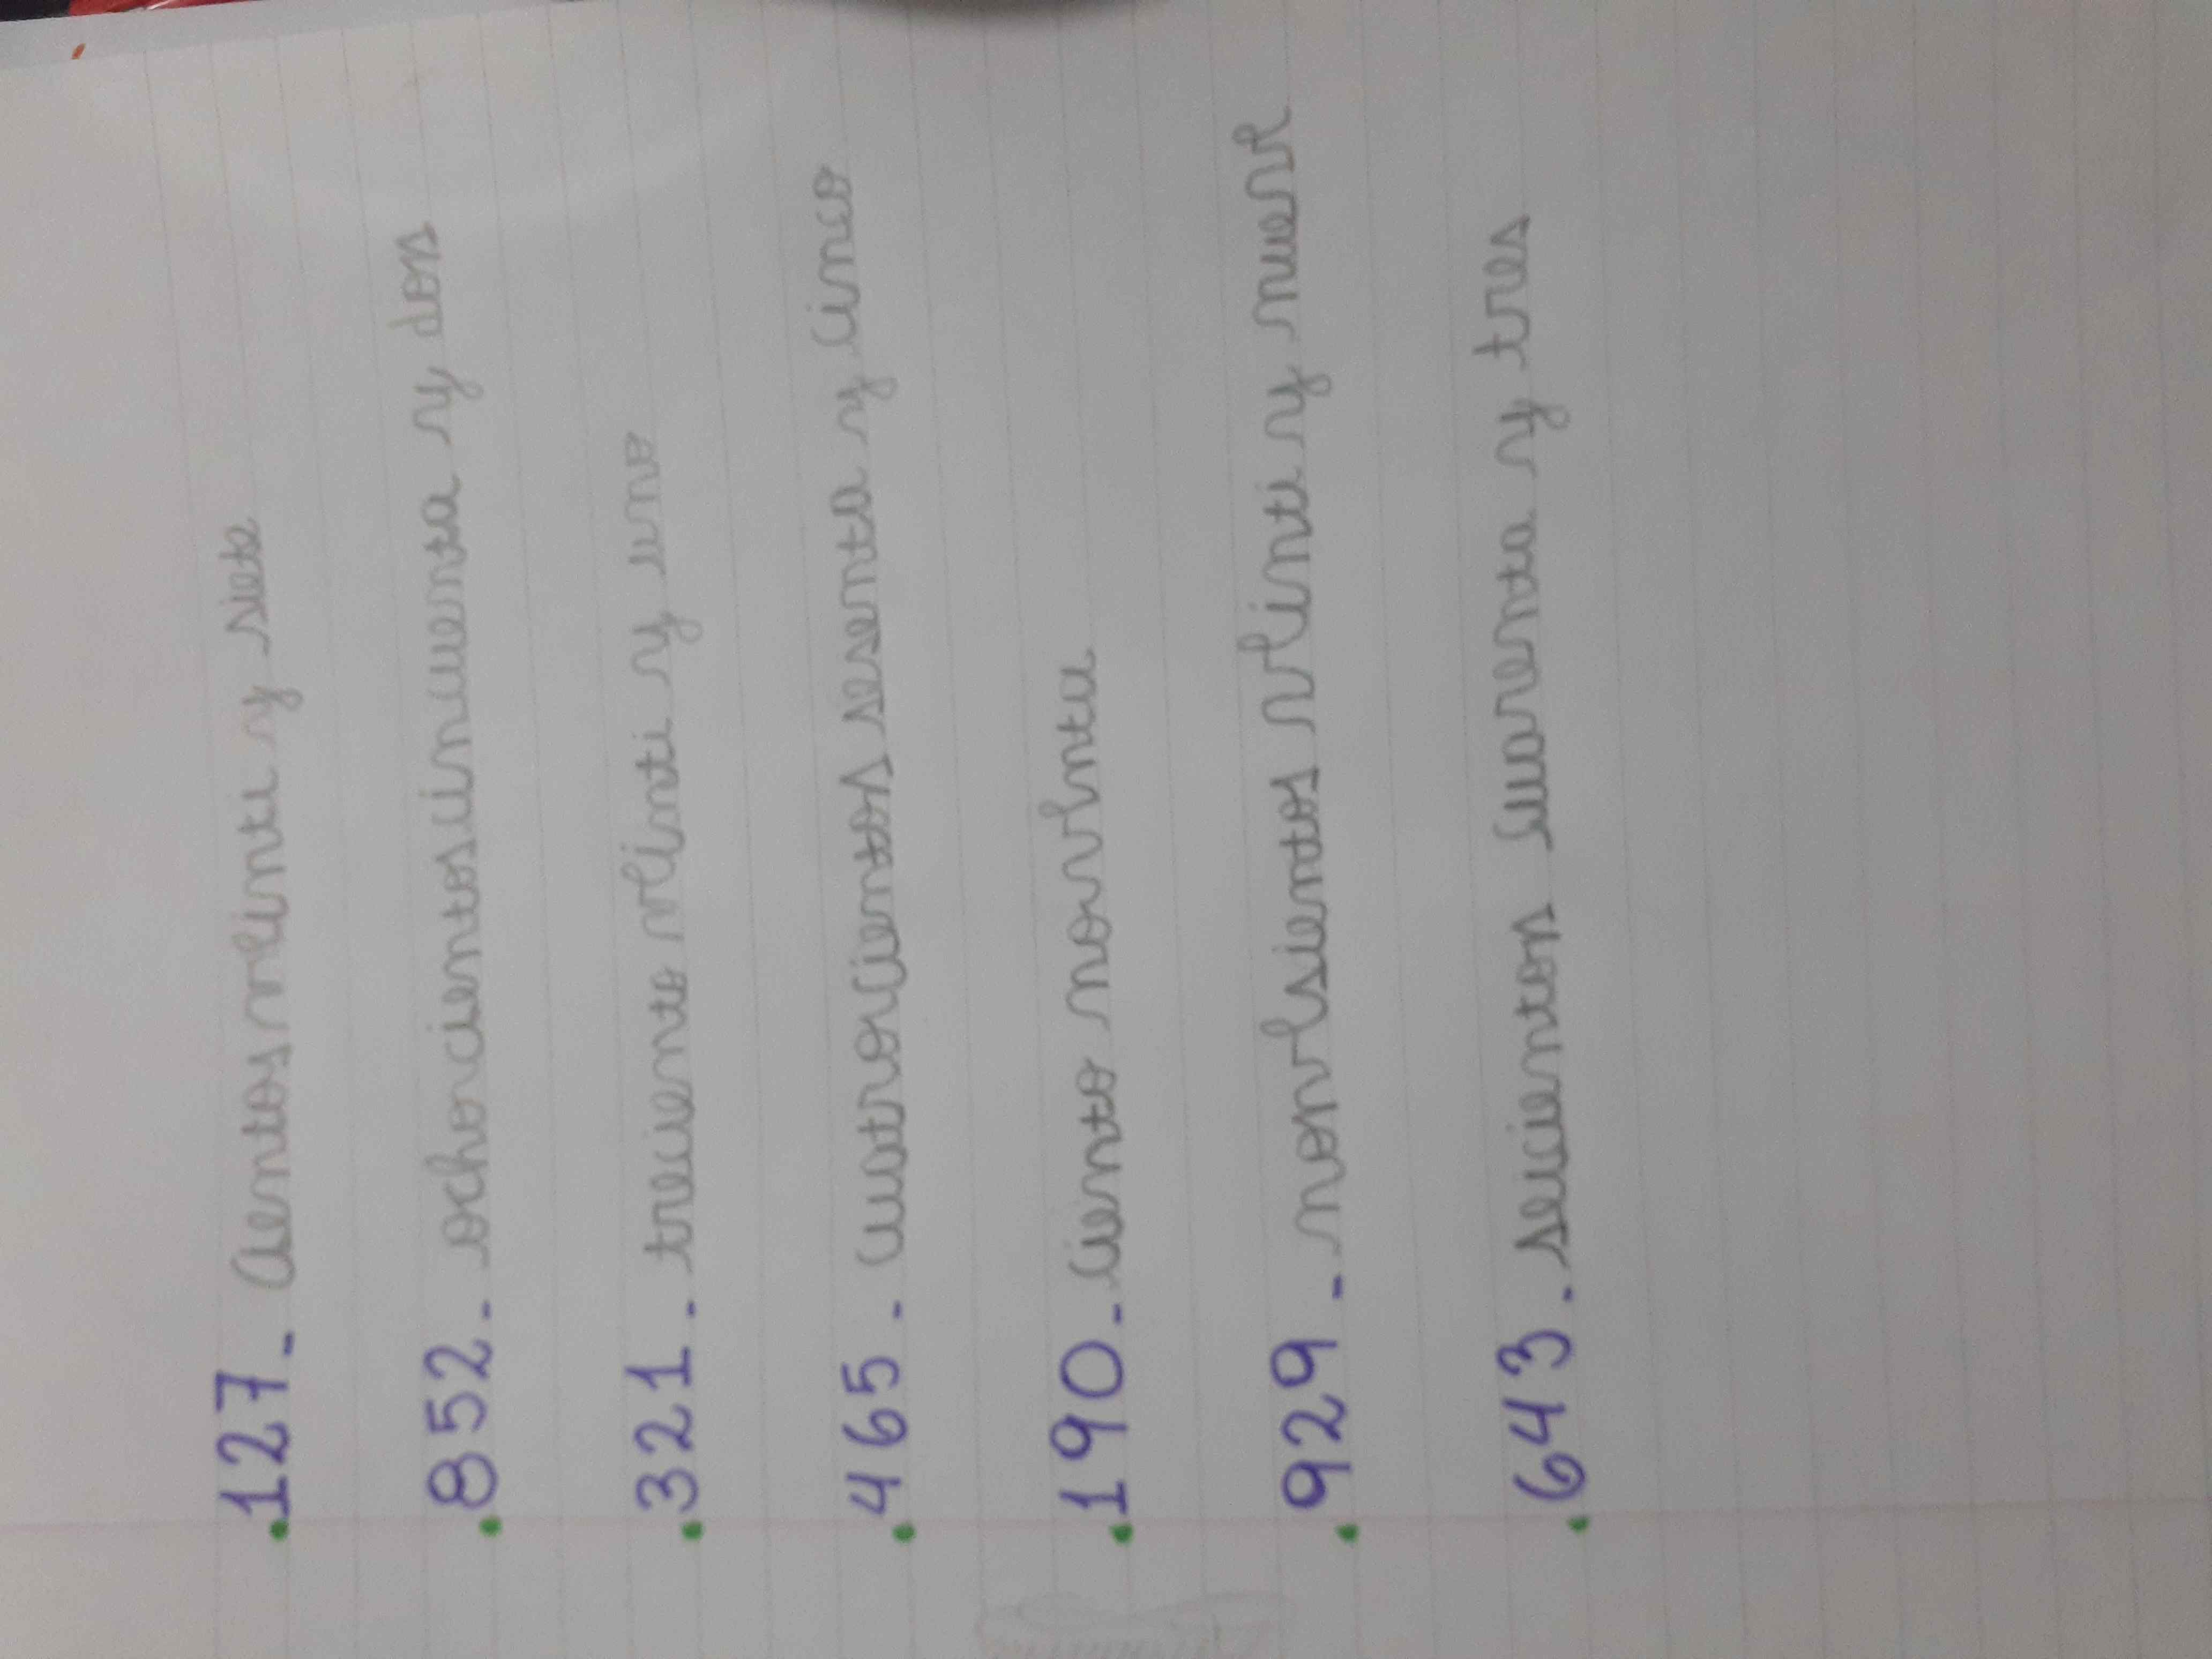 .127- cientos veinti y siete
.852- ochocientos cincuenta y dos
.321- treciento veinti y uno
.465- cuatrocientos sesenta y cinco
.190- ciento noventa
.929- novesientos veinti y nueve
.643- secientos cuarenta y tres